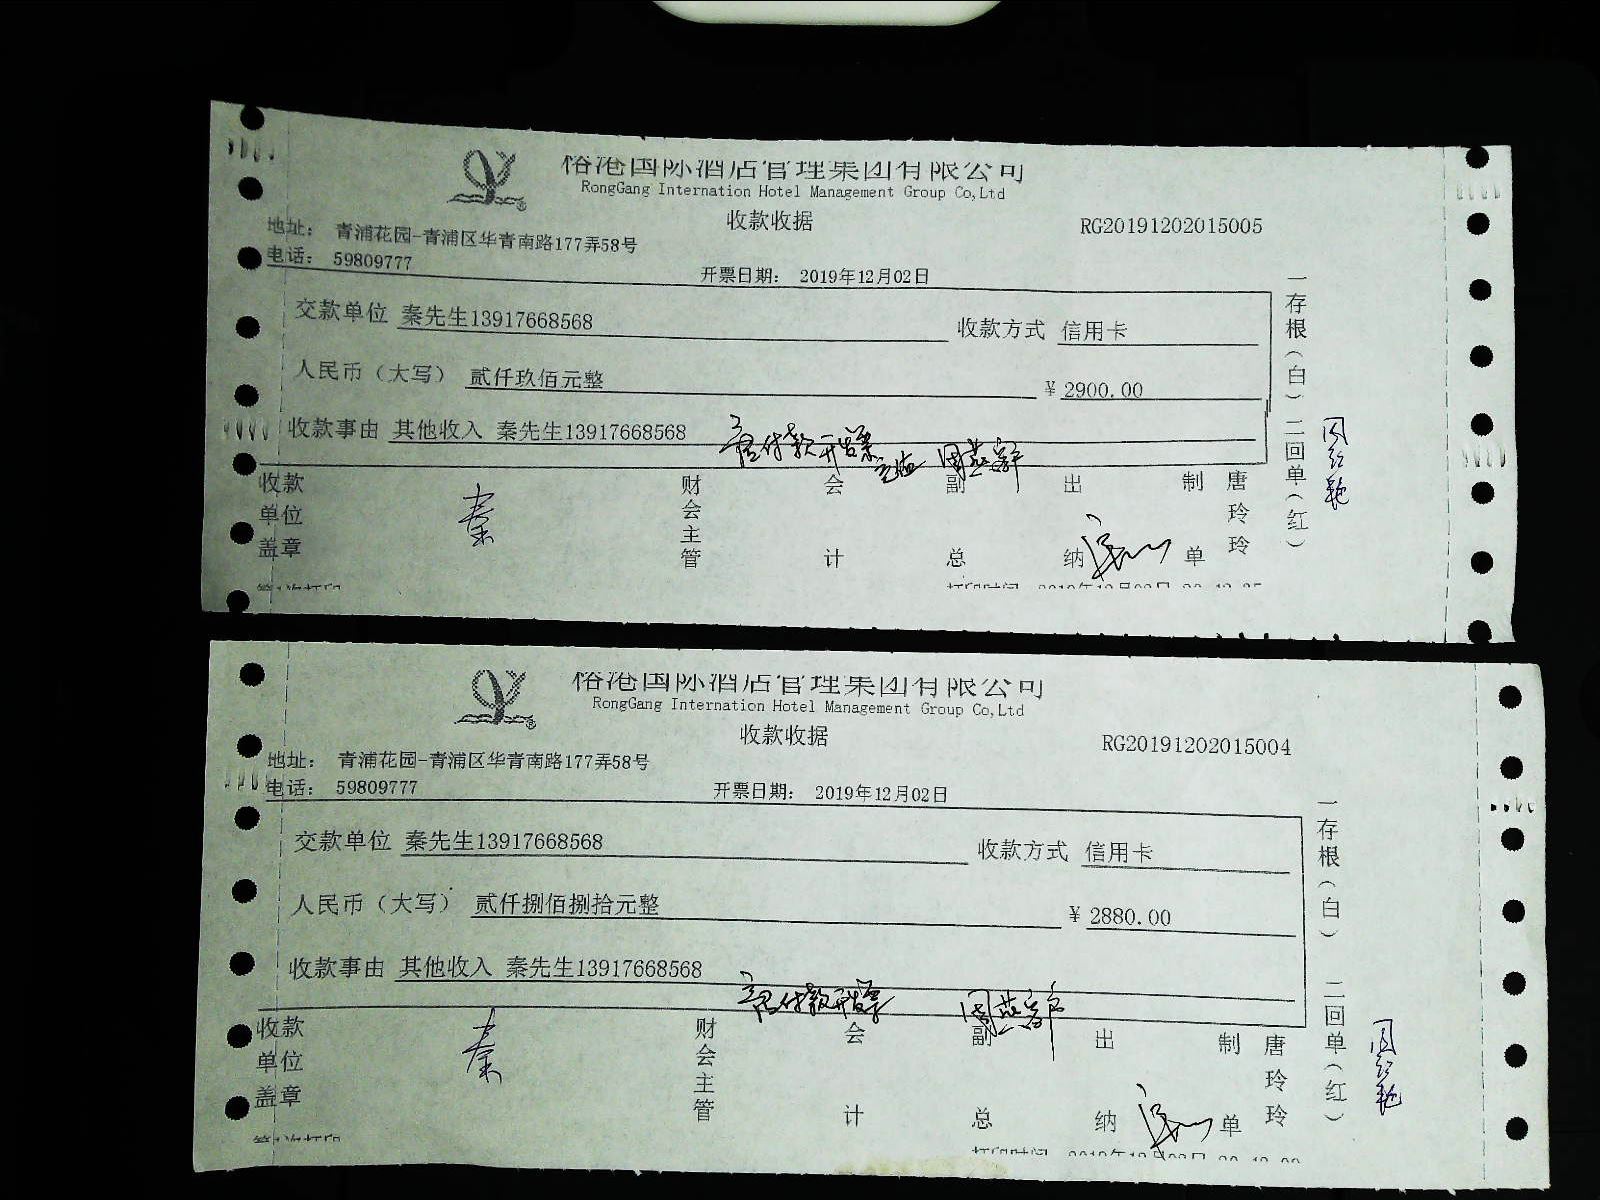 榕港国际酒店管理集团有限公司
RongGang Internation Hotel Management Group Co,Ltd
收款收据
RG20191202015005
地址： 青浦花园-青浦区华青南路177弄58号
电话： 59809777
开票日期： 2019年12月02日
交款单位 秦先生13917668568 收款方式 信用卡
人民币（大写） 贰仟玖佰元整 ￥2900.00
收款事由 其他收入 秦先生13917668568
收款单位盖章 秦 财会主管 会计 副总 出纳 制单 唐玲玲
一存根（白） 二回单（红）
第1次打印
榕港国际酒店管理集团有限公司
RongGang Internation Hotel Management Group Co,Ltd
收款收据
RG20191202015004
地址： 青浦花园-青浦区华青南路177弄58号
电话： 59809777
开票日期： 2019年12月02日
交款单位 秦先生13917668568 收款方式 信用卡
人民币（大写） 贰仟捌佰捌拾元整 ￥2880.00
收款事由 其他收入 秦先生13917668568
收款单位盖章 秦 财会主管 会计 副总 出纳 制单 唐玲玲
一存根（白） 二回单（红）
第1次打印